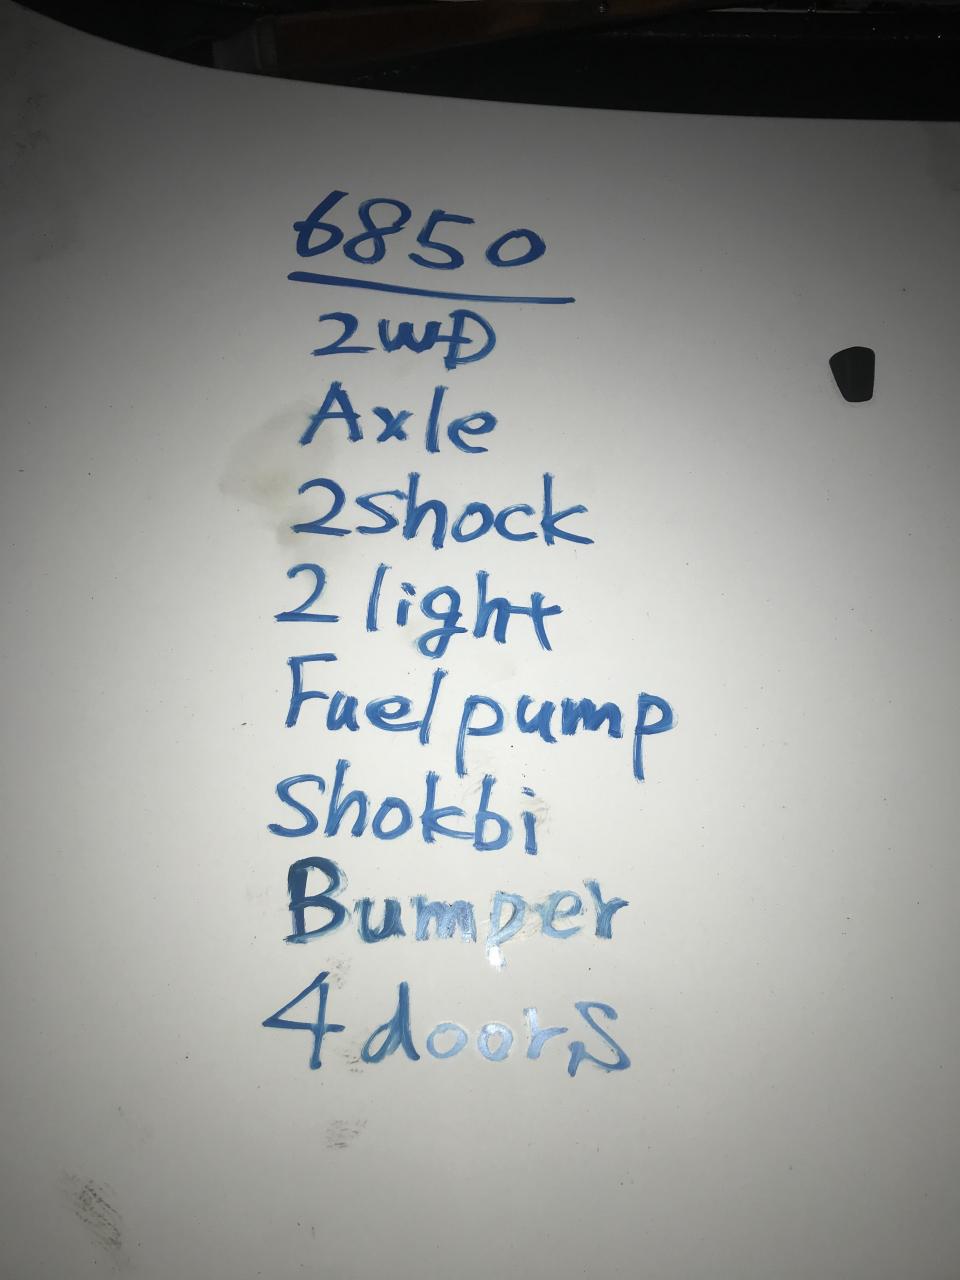 6850
2WD
Axle
2shock
2 light
Fuel pump
Shokbi
Bumper
4 doors